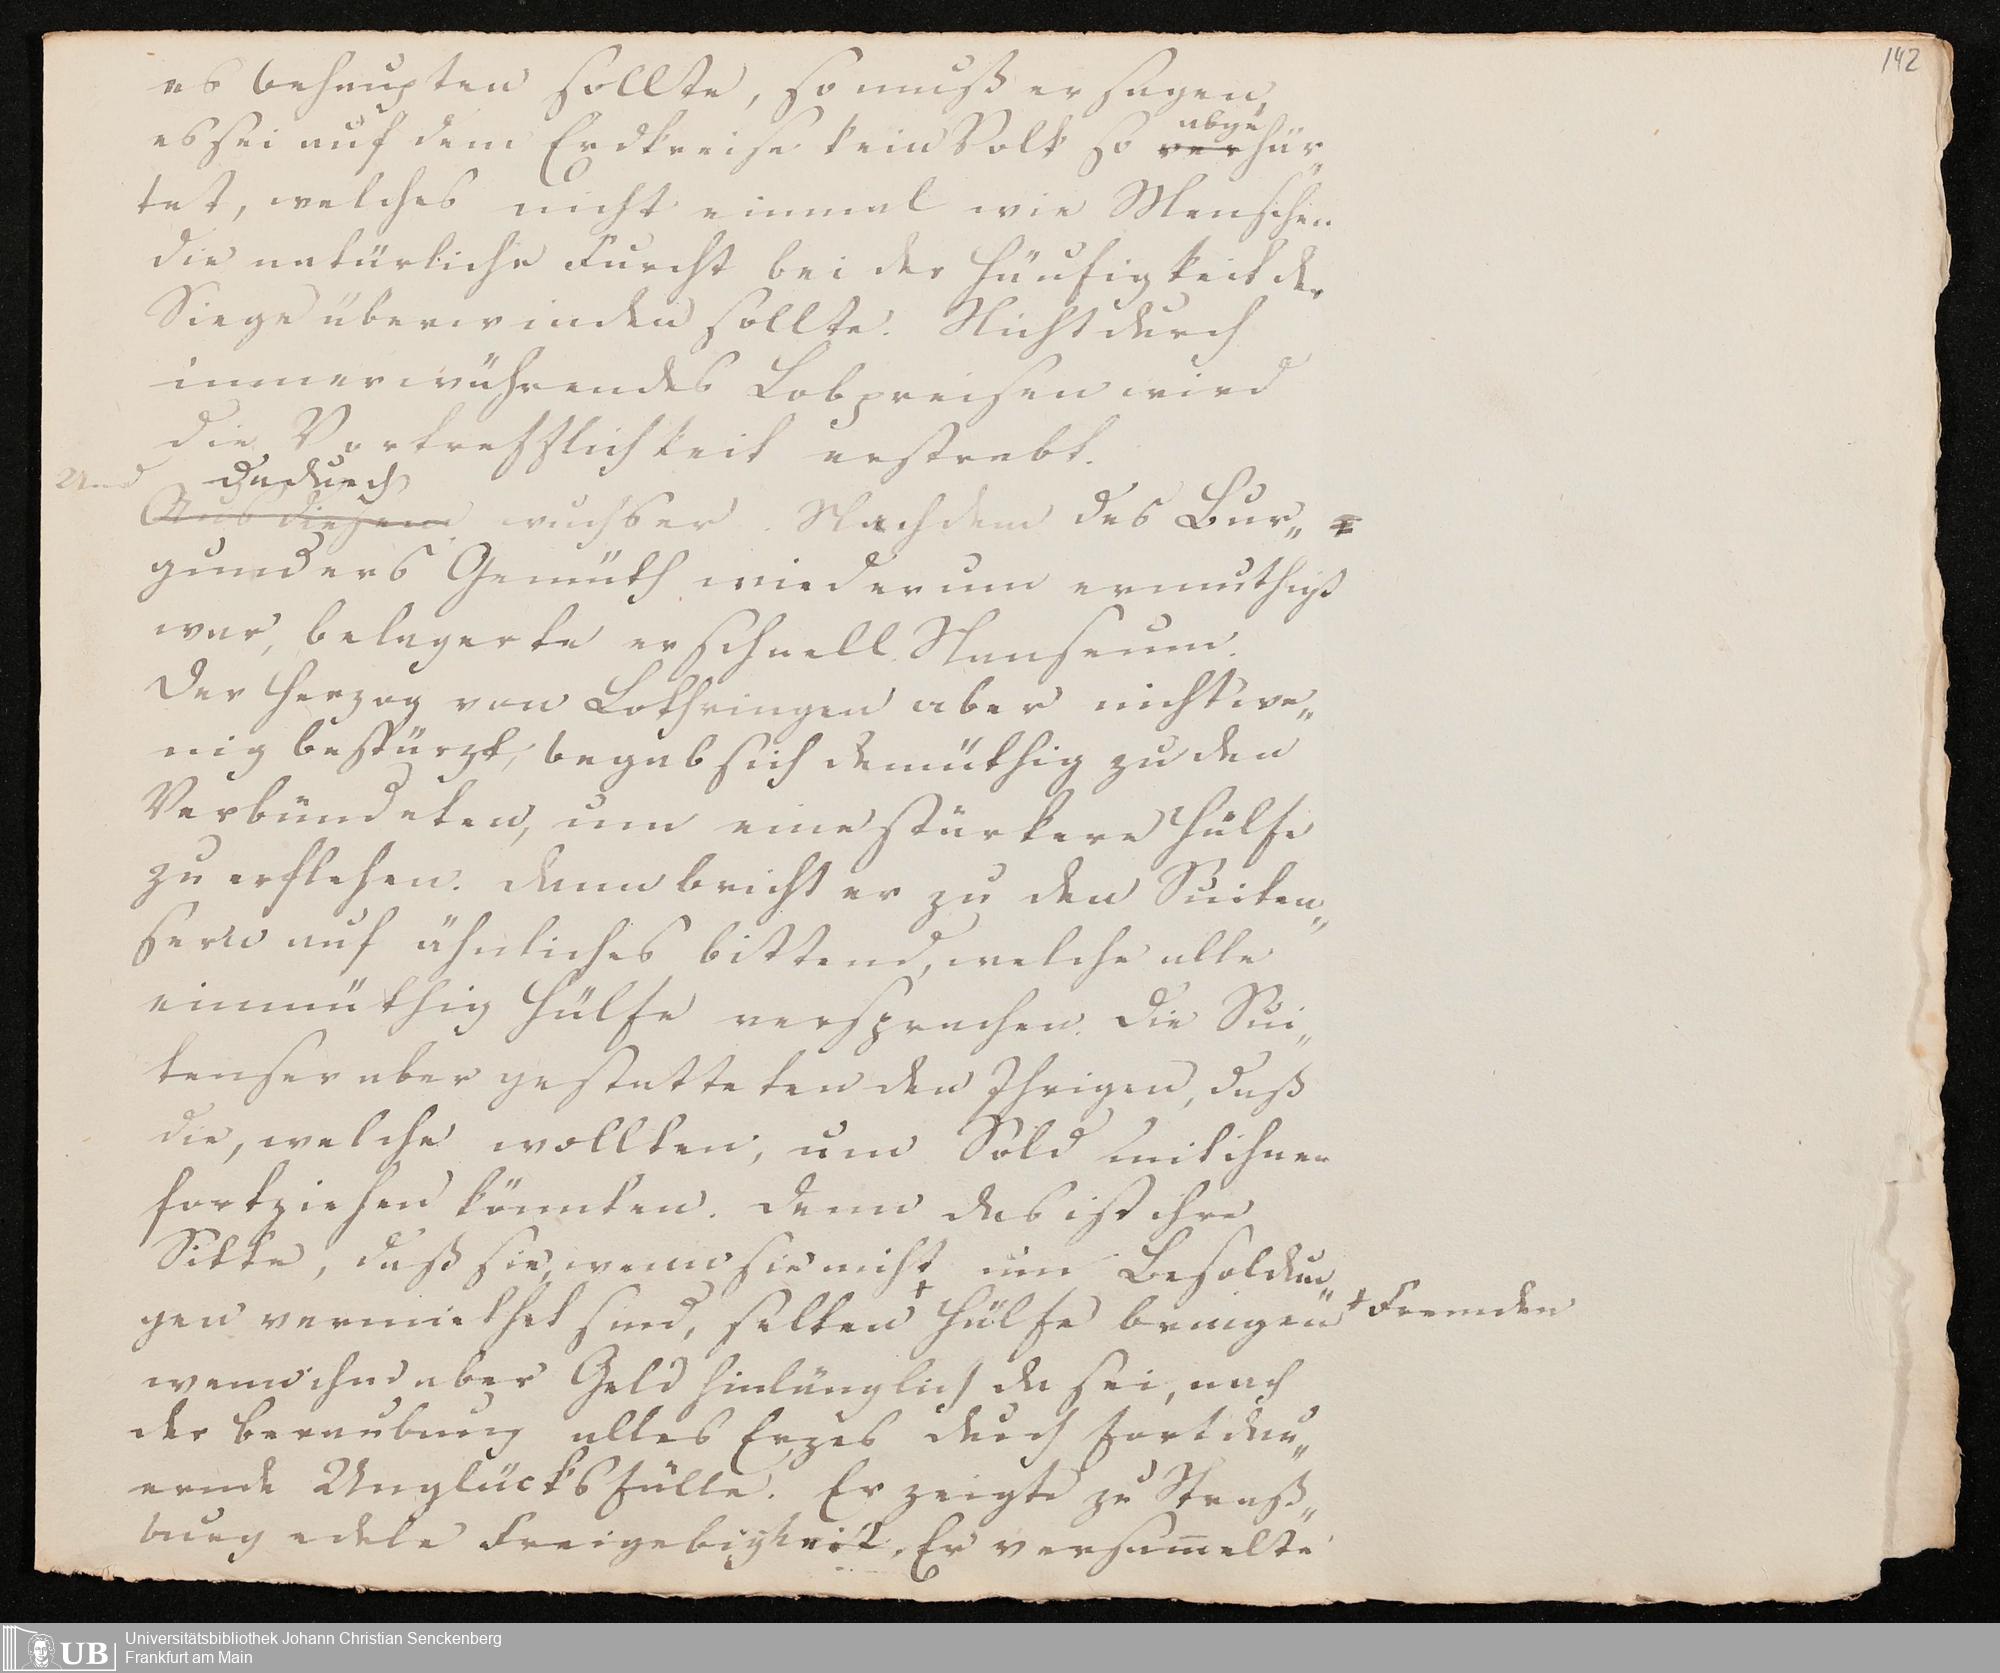 142
es behaupten sollte, so muß er sagen,
es sei auf dem Erdkreise kein Volk so verhär„
abge
tet, welches nicht einmal wie Menschen
die natürliche Furcht bei der Häufigkeit der
Siege überwinden sollte. Nicht durch
immerwährendes Lobpreisen wird
die Vortrefflichkeit erstrebt.
Und Dadurch
Aus diesem wuchs er. Nachdem des Bur„
gunders Gemüth wiederum ermuthigt
war, belagerte er schnell Nanseum.
Der Herzog von Lothringen aber nicht we„
nig bestürzt, begab sich demüthig zu den
Verbündeten, um eine stärkere Hülfe
zu erflehen. Dann bricht er zu den Suiten„
sern auf ähnliches bittend, welche alle
einmüthig Hülfe versprachen. Die Sui„
tenser aber gestatteten den Ihrigen, daß
die, welche wollten, um Sold mit ihnen
fortziehen könnten. Denn das ist ihre
Sitte, daß sie, wenn sie nicht um Besoldun„
gen vermiethet sind, selten + Hülfe bringen + Fremden
wenn ihnen aber Geld hinlänglich da sei, nach
der Beraubung alles Erzes durch fortdau„
ernde Unglücksfälle. Er zeigte zu Straß„
burg edele Freigebigkeit. Er versam̅elte
Universitätsbibliothek Johann Christian Senckenberg
UB
Frankfurt am Main